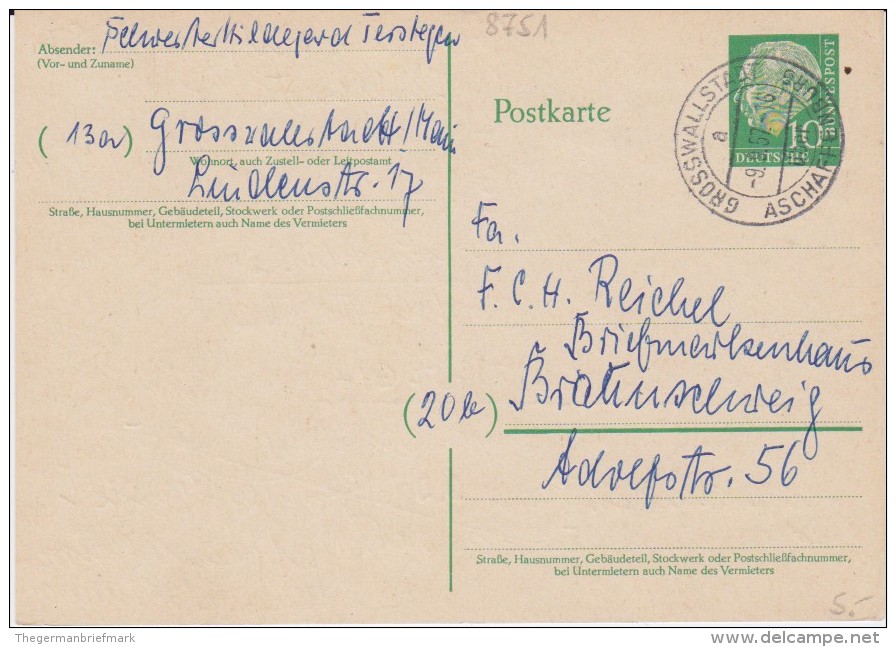 8751
Absender: Schwester Hildegard Terstegen
(Vor- und Zuname)
(13a) Grosswallstadt/Main
Wohnort, auch Zustell- oder Leitpostamt
Lindenstr. 17
Straße, Hausnummer, Gebäudeteil, Stockwerk oder Postschließfachnummer,
bei Untermietern auch Name des Vermieters
Postkarte
10
DEUTSCHE
BUNDESPOST
GROSSWALLSTADT
a
ASCHAFFENBURG
Fa.
F. C. H. Reichel
Briefmarkenhaus
(20b) Braunschweig
Adolfstr. 56
Straße, Hausnummer, Gebäudeteil, Stockwerk oder Postschließfachnummer,
bei Untermietern auch Name des Vermieters
5.-
Thegermanbriefmark
delcampe.net